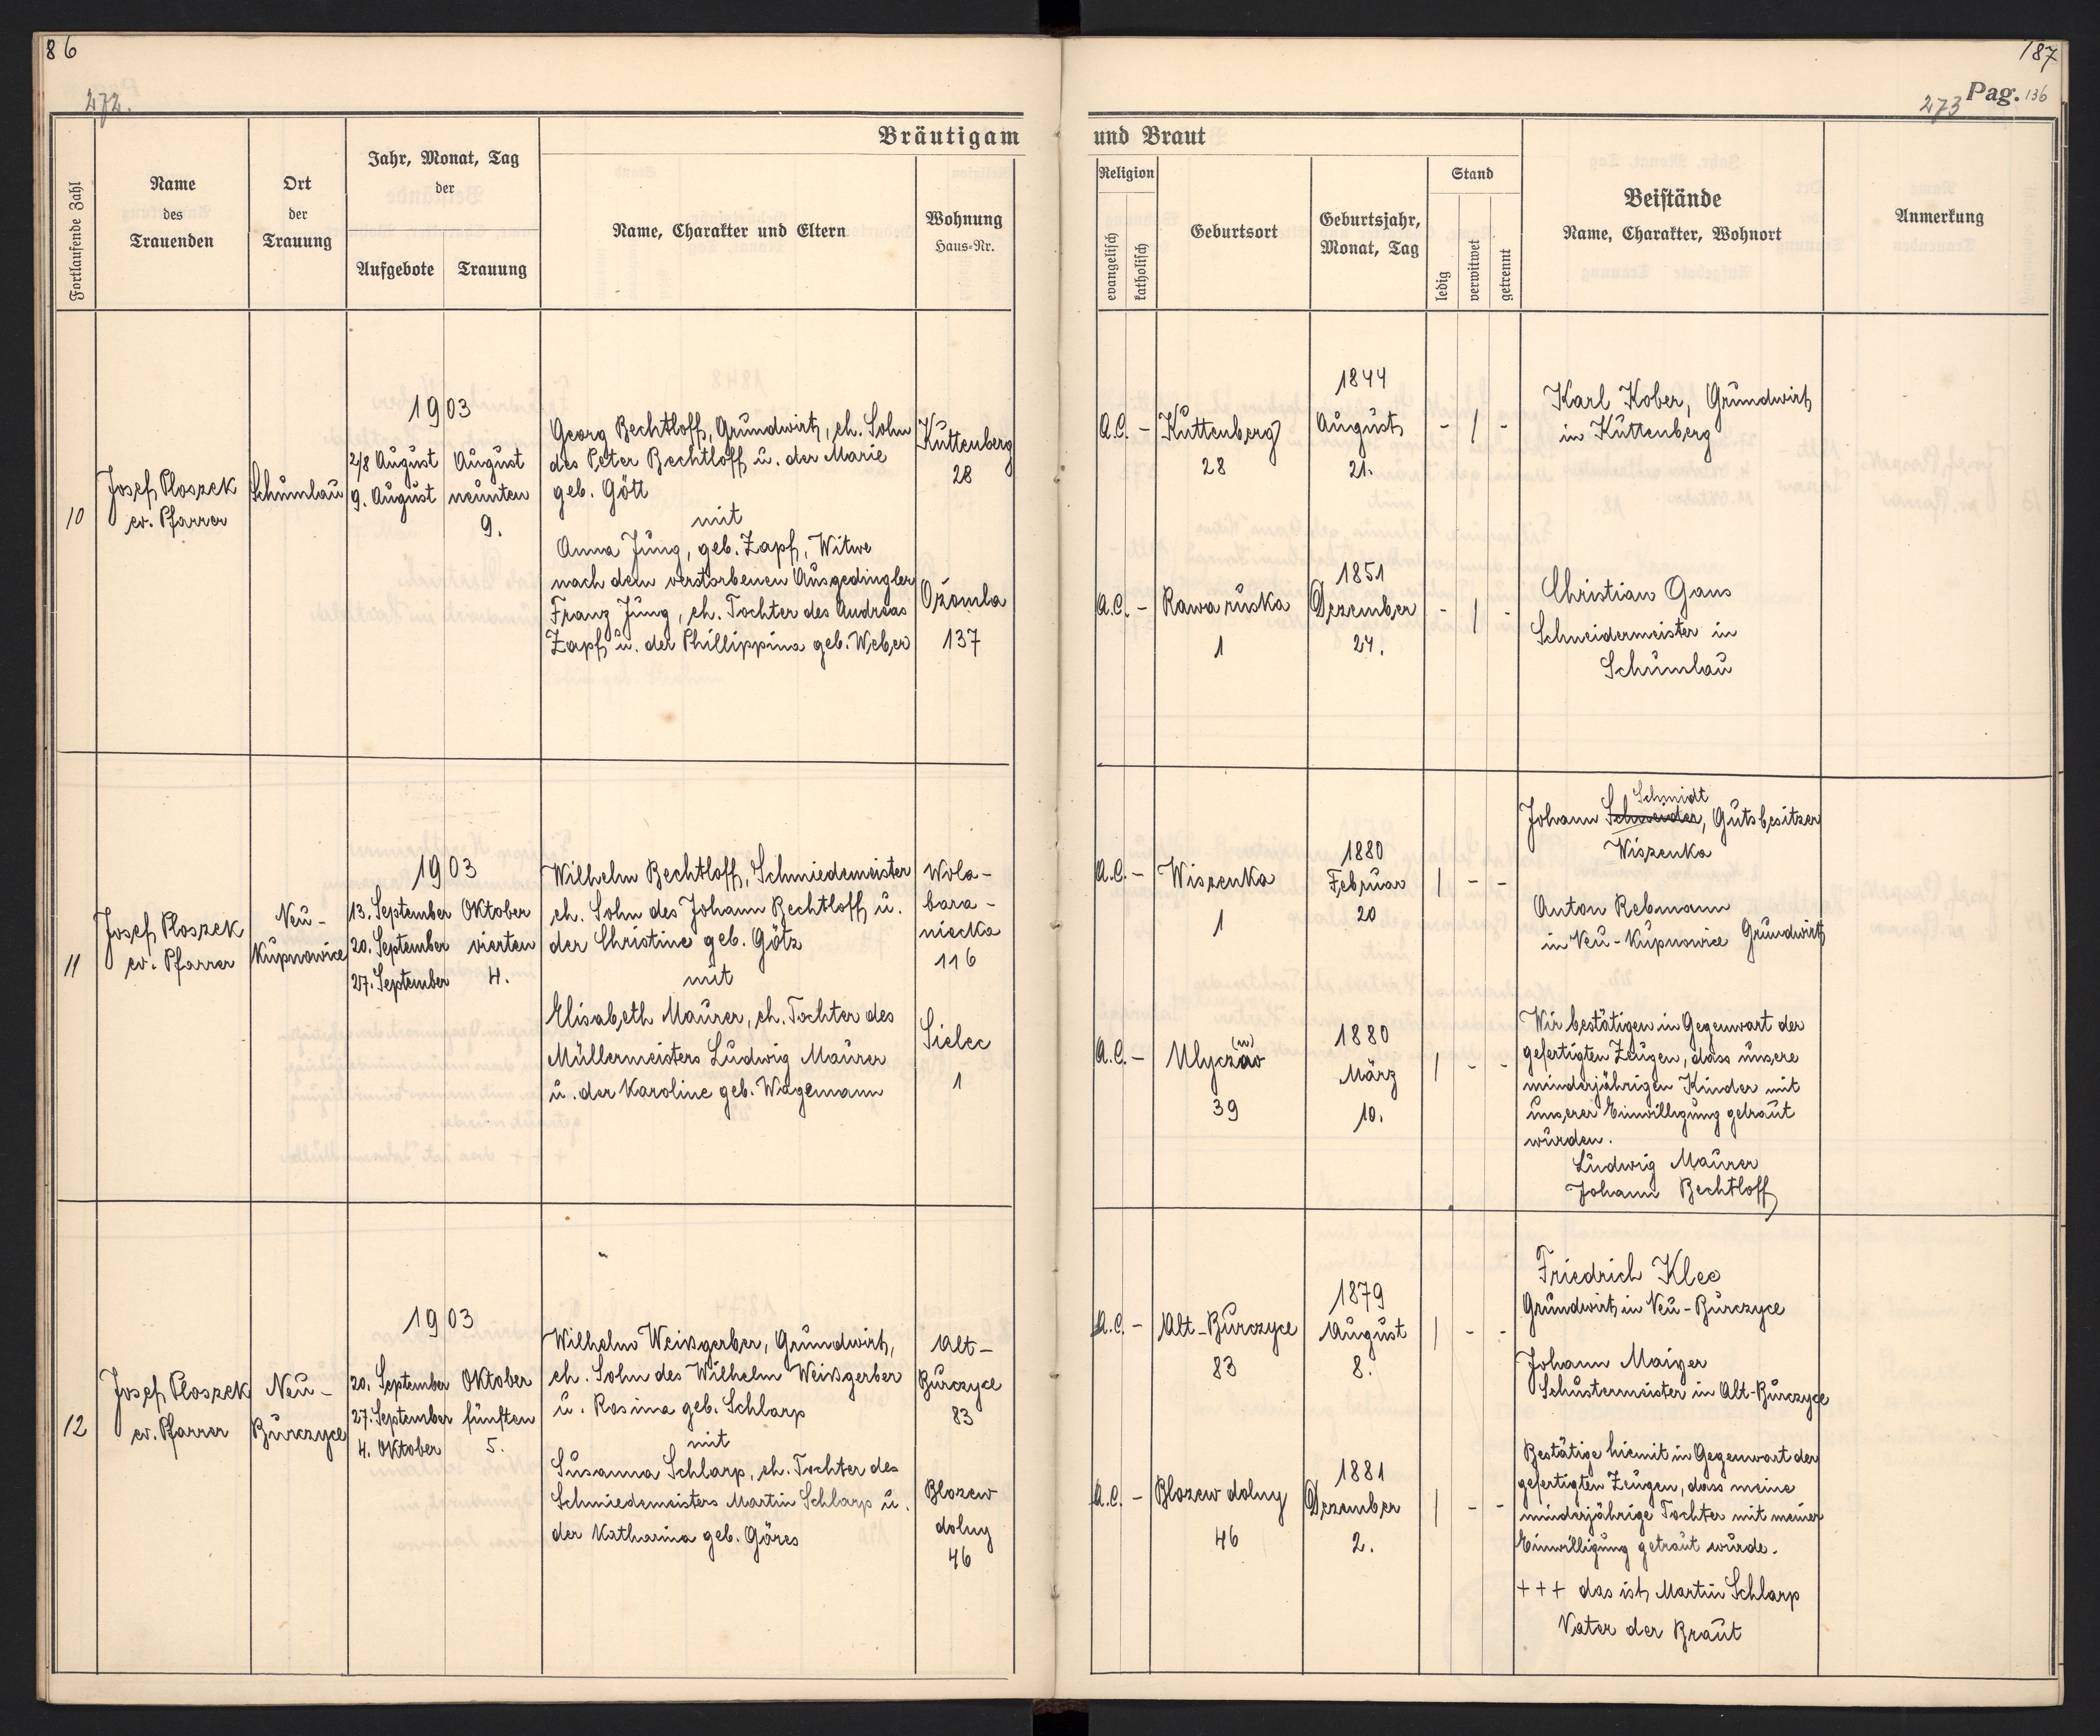 86
272.
187
273 Pag. 136
Bräutigam und Braut
Fortlaufende Zahl
Name
des
Trauenden
Ort
der
Trauung
Jahr, Monat, Tag
der
Aufgebote
Trauung
Name, Charakter und Eltern
Wohnung
Haus=Nr.
Religion
evangelisch
katholisch
Geburtsort
Geburtsjahr,
Monat, Tag
Stand
ledig
verwitwet
getrennt
Beistände
Name, Charakter, Wohnort
Anmerkung
10
Josef Ploszek
ev. Pfarrer
Schumlau
1903
2/8 August
9. August
August
neunten
9.
Georg Bechtloff, Grundwirt, eh. Sohn
des Peter Bechtloff u. der Marie
geb. Gött
mit
Anna Jung, geb. Zapf, Witwe
nach dem verstorbenen Ausgedingler
Franz Jung, eh. Tochter des Andreas
Zapf u. der Phillippina geb. Weber
Kuttenberg
28
Ożomla
137
A.C. -
Kuttenberg
28
1844
August
21.
- / -
A.C. -
Rawa ruska
1
1851
Dezember
24.
- / -
Karl Kober, Grundwirt
in Kuttenberg
Christian Gans
Schneidermeister in
Schumlau
11
Josef Ploszek
ev. Pfarrer
Neu-
Kupnowice
1903
13. September
20. September
27. September
Oktober
vierten
4.
Wilhelm Bechtloff, Schmiedemeister
eh. Sohn des Johann Bechtloff u.
der Christine geb. Götz
mit
Elisabeth Maurer, eh. Tochter des
Müllermeisters Ludwig Maurer
u. der Karoline geb. Wagemann
Wola-
bara-
niecka
116
Sielec
1
A.C. -
Wiszenka
1
1880
Februar
20
/ - -
A.C. -
(n)
Ulyczno
39
1880
März
10.
/ - -
Schmidt
Johann Schneider, Gutsbesitzer
Wiszenka
Anton Rebmann
in Neu-Kupnowice Grundwirt
Wir bestätigen in Gegenwart der
gefertigten Zeugen, dass unsere
minderjährigen Kinder mit
unserer Einwilligung getraut
wurden.
Ludwig Maurer
Johann Bechtloff
12
Josef Ploszek
ev. Pfarrer
Neu-
Burczyce
1903
20. September
27. September
4. Oktober
Oktober
fünften
5.
Wilhelm Weißgerber, Grundwirt,
eh. Sohn des Wilhelm Weißgerber
u. Rosina geb. Schlarp
mit
Susanna Schlarp, eh. Tochter des
Schmiedemeisters Martin Schlarp u.
der Katharina geb. Göres
Alt-
Burczyce
83
Blozew
dolny
46
A.C. -
Alt-Burczyce
83
1879
August
8.
/ - -
A.C. -
Blozew dolny
46
1881
Dezember
2.
/ - -
Friedrich Klee
Grundwirt in Neu-Burczyce
Johann Maiger
Schustermeister in Alt-Burczyce
Bestätige hiemit in Gegenwart der
gefertigten Zeugen, dass meine
minderjährige Tochter mit meiner
Einwilligung getraut wurde.
+++ das ist Martin Schlarp
Vater der Braut